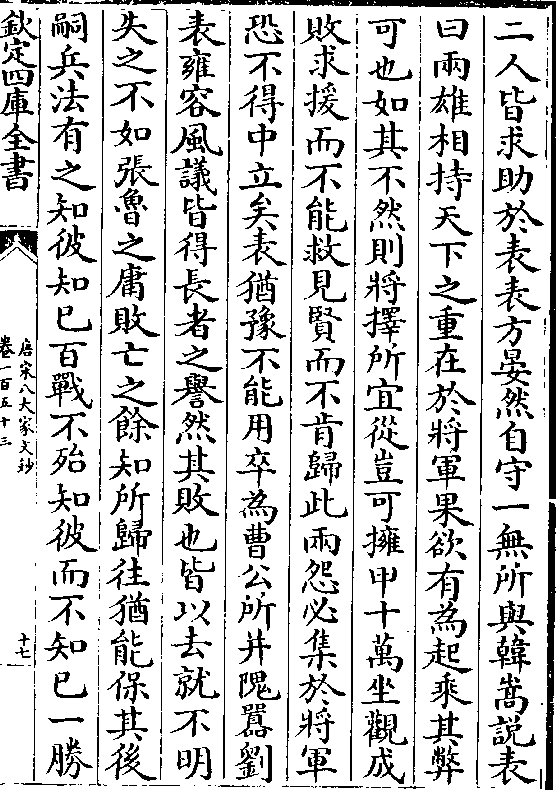 二人皆求助於表表方晏然自守一無所與韓嵩説表
曰兩雄相持天下之重在於將軍果欲有為起乗其弊
可也如其不然則將擇所宜從豈可擁甲十萬坐觀成
敗求援而不能救見賢而不肯歸此兩怨必集於將軍
恐不得中立矣表猶豫不能用卒為曹公所并隗囂劉
表雍容風議皆得長者之譽然其敗也皆以去就不明
失之不如張魯之庸敗亡之餘知所歸往猶能保其後
嗣兵法有之知彼知已百戰不殆知彼而不知已一勝
欽定四庫全書
唐宋八大家文鈔
卷一百五十三
十七